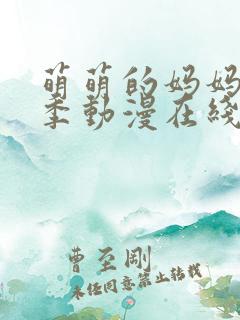 萌萌的妈妈
季動漫在綫
曹至剛
未经同意禁止转载